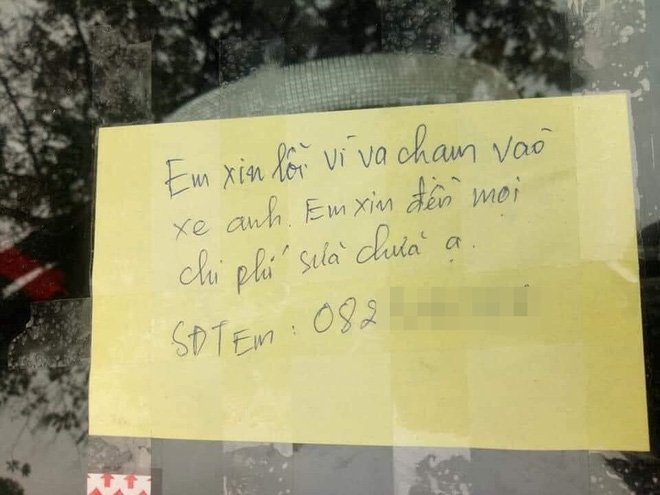 Em xin lỗi vì va chạm vào
xe anh. Em xin đền mọi
chi phí sửa chữa ạ.
SĐT Em: 082